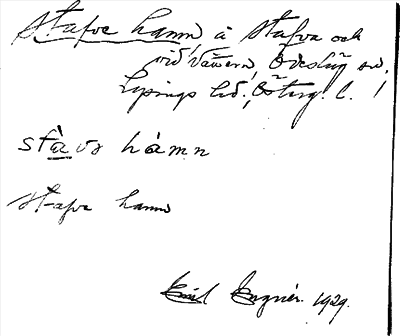 Stafve hamn å Stafva och
vid Vättern, Ödeshög sn.
Lysings hd., Österg. l.
stàvə hàmn
Stafve hamn
Emil Engnér. 1929.